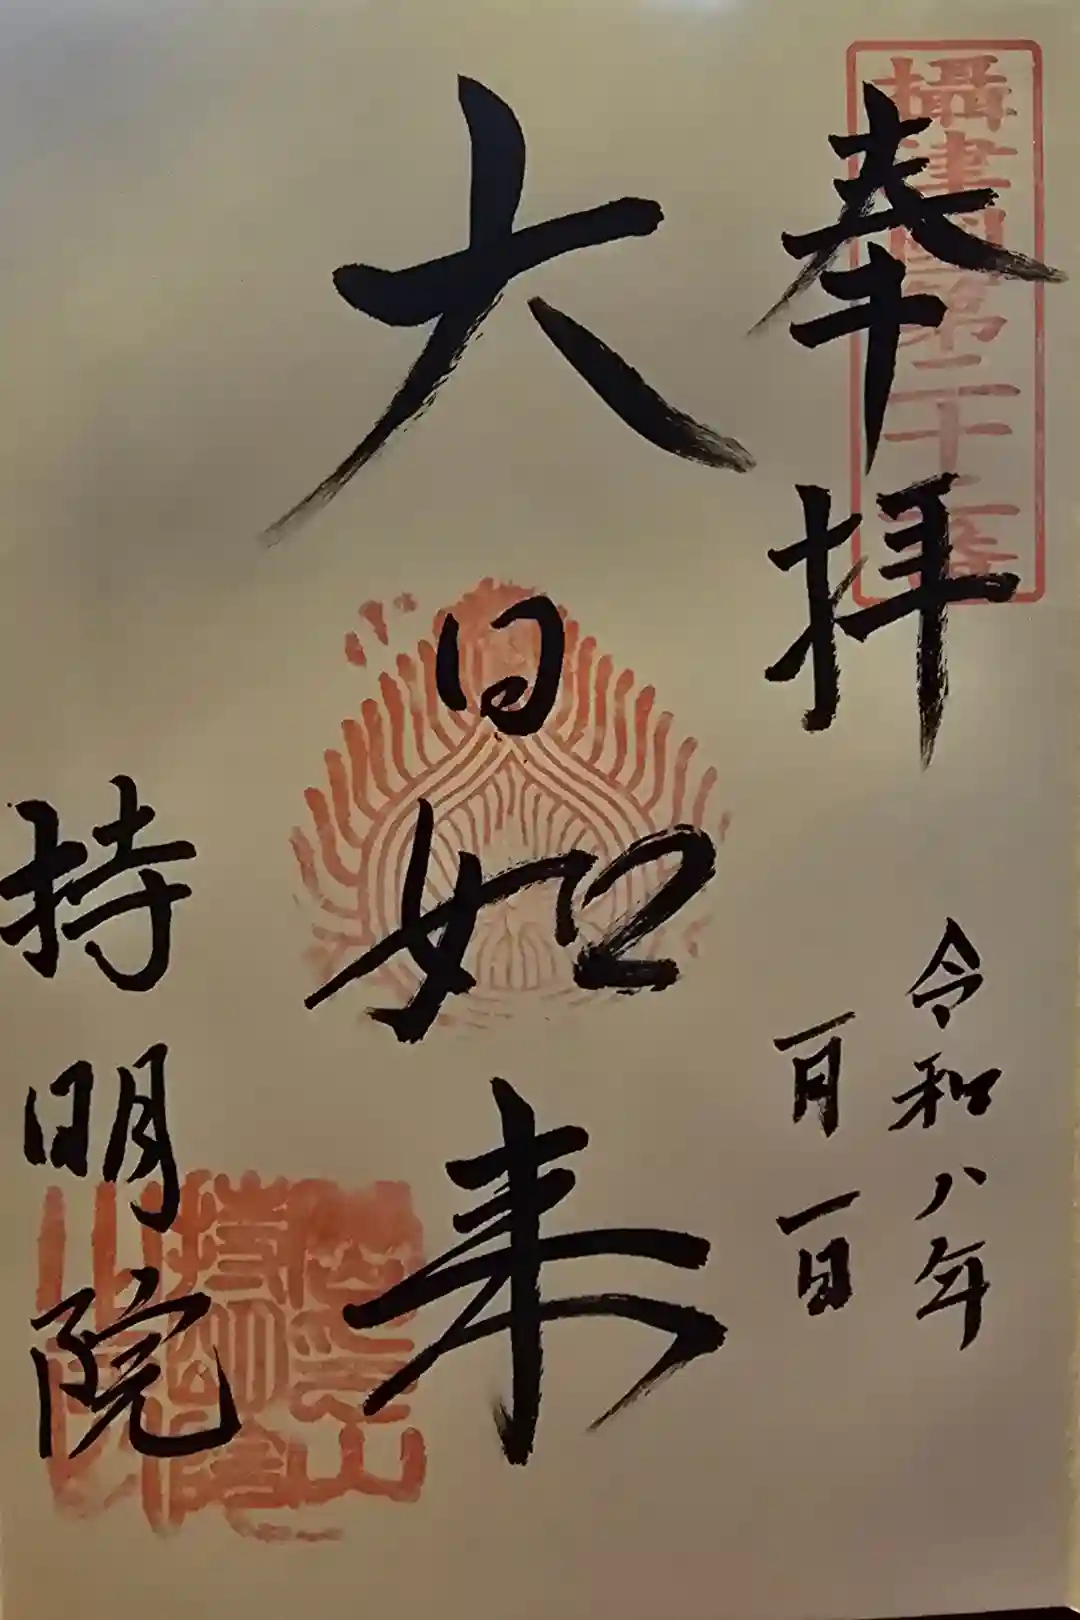 攝津國第二十二番
奉拝
令和八年
一月一日
大日如来
持明院